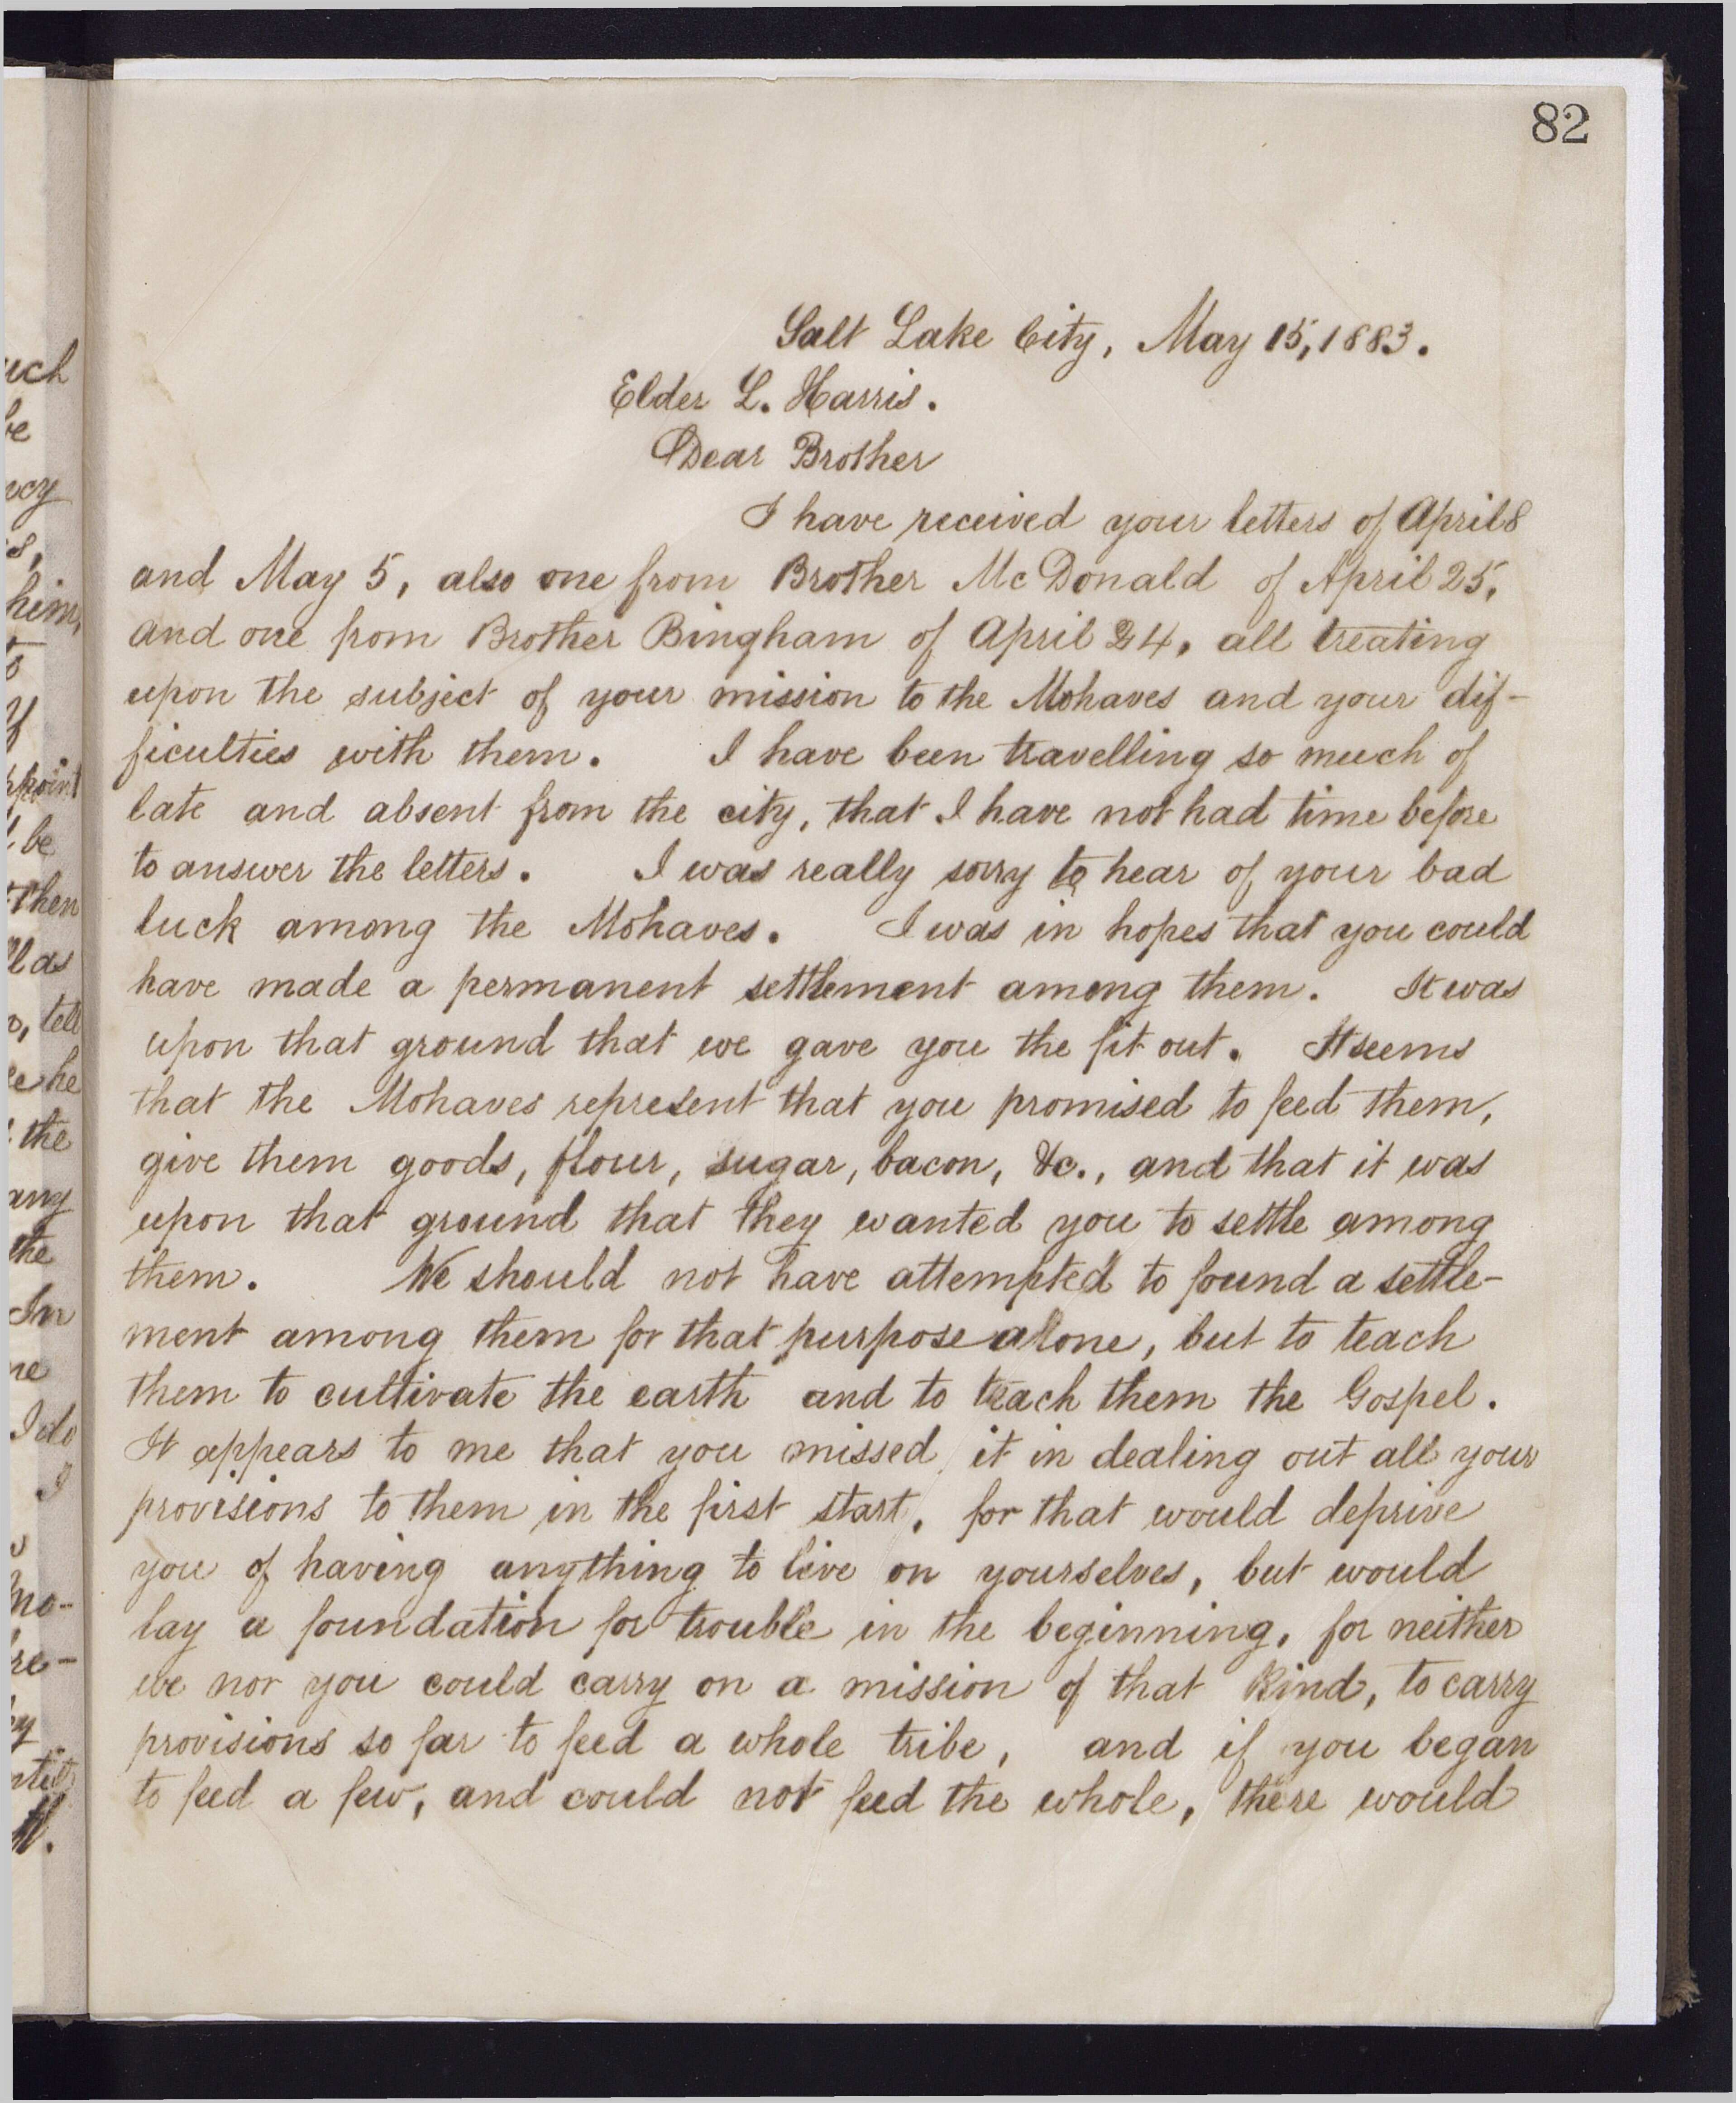 82
Salt Lake City, May 15, 1883.
Elder L. Harris.
Dear Brother
I have received your letters of April 8
and May 5, also one from Brother McDonald of April 25,
and one from Brother Bingham of April 24, all treating
upon the subject of your mission to the Mohaves and your dif-
ficulties with them. I have been travelling so much of
late and absent from the city, that I have not had time before
to answer the letters. I was really sorry to hear of your bad
luck among the Mohaves. I was in hopes that you could
have made a permanent settlement among them. It was
upon that ground that we gave you the fit out. It seems
that the Mohaves represent that you promised to feed them,
give them goods, flour, sugar, bacon, &c., and that it was
upon that ground that they wanted you to settle among
them. We should not have attempted to found a settle-
ment among them for that purpose alone, but to teach
them to cultivate the earth and to teach them the Gospel.
It appears to me that you missed it in dealing out all your
provisions to them in the first start, for that would deprive
you of having anything to live on yourselves, but would
lay a foundation for trouble in the beginning, for neither
we nor you could carry on a mission of that kind, to carry
provisions so far to feed a whole tribe, and if you began
to feed a few, and could not feed the whole, there would